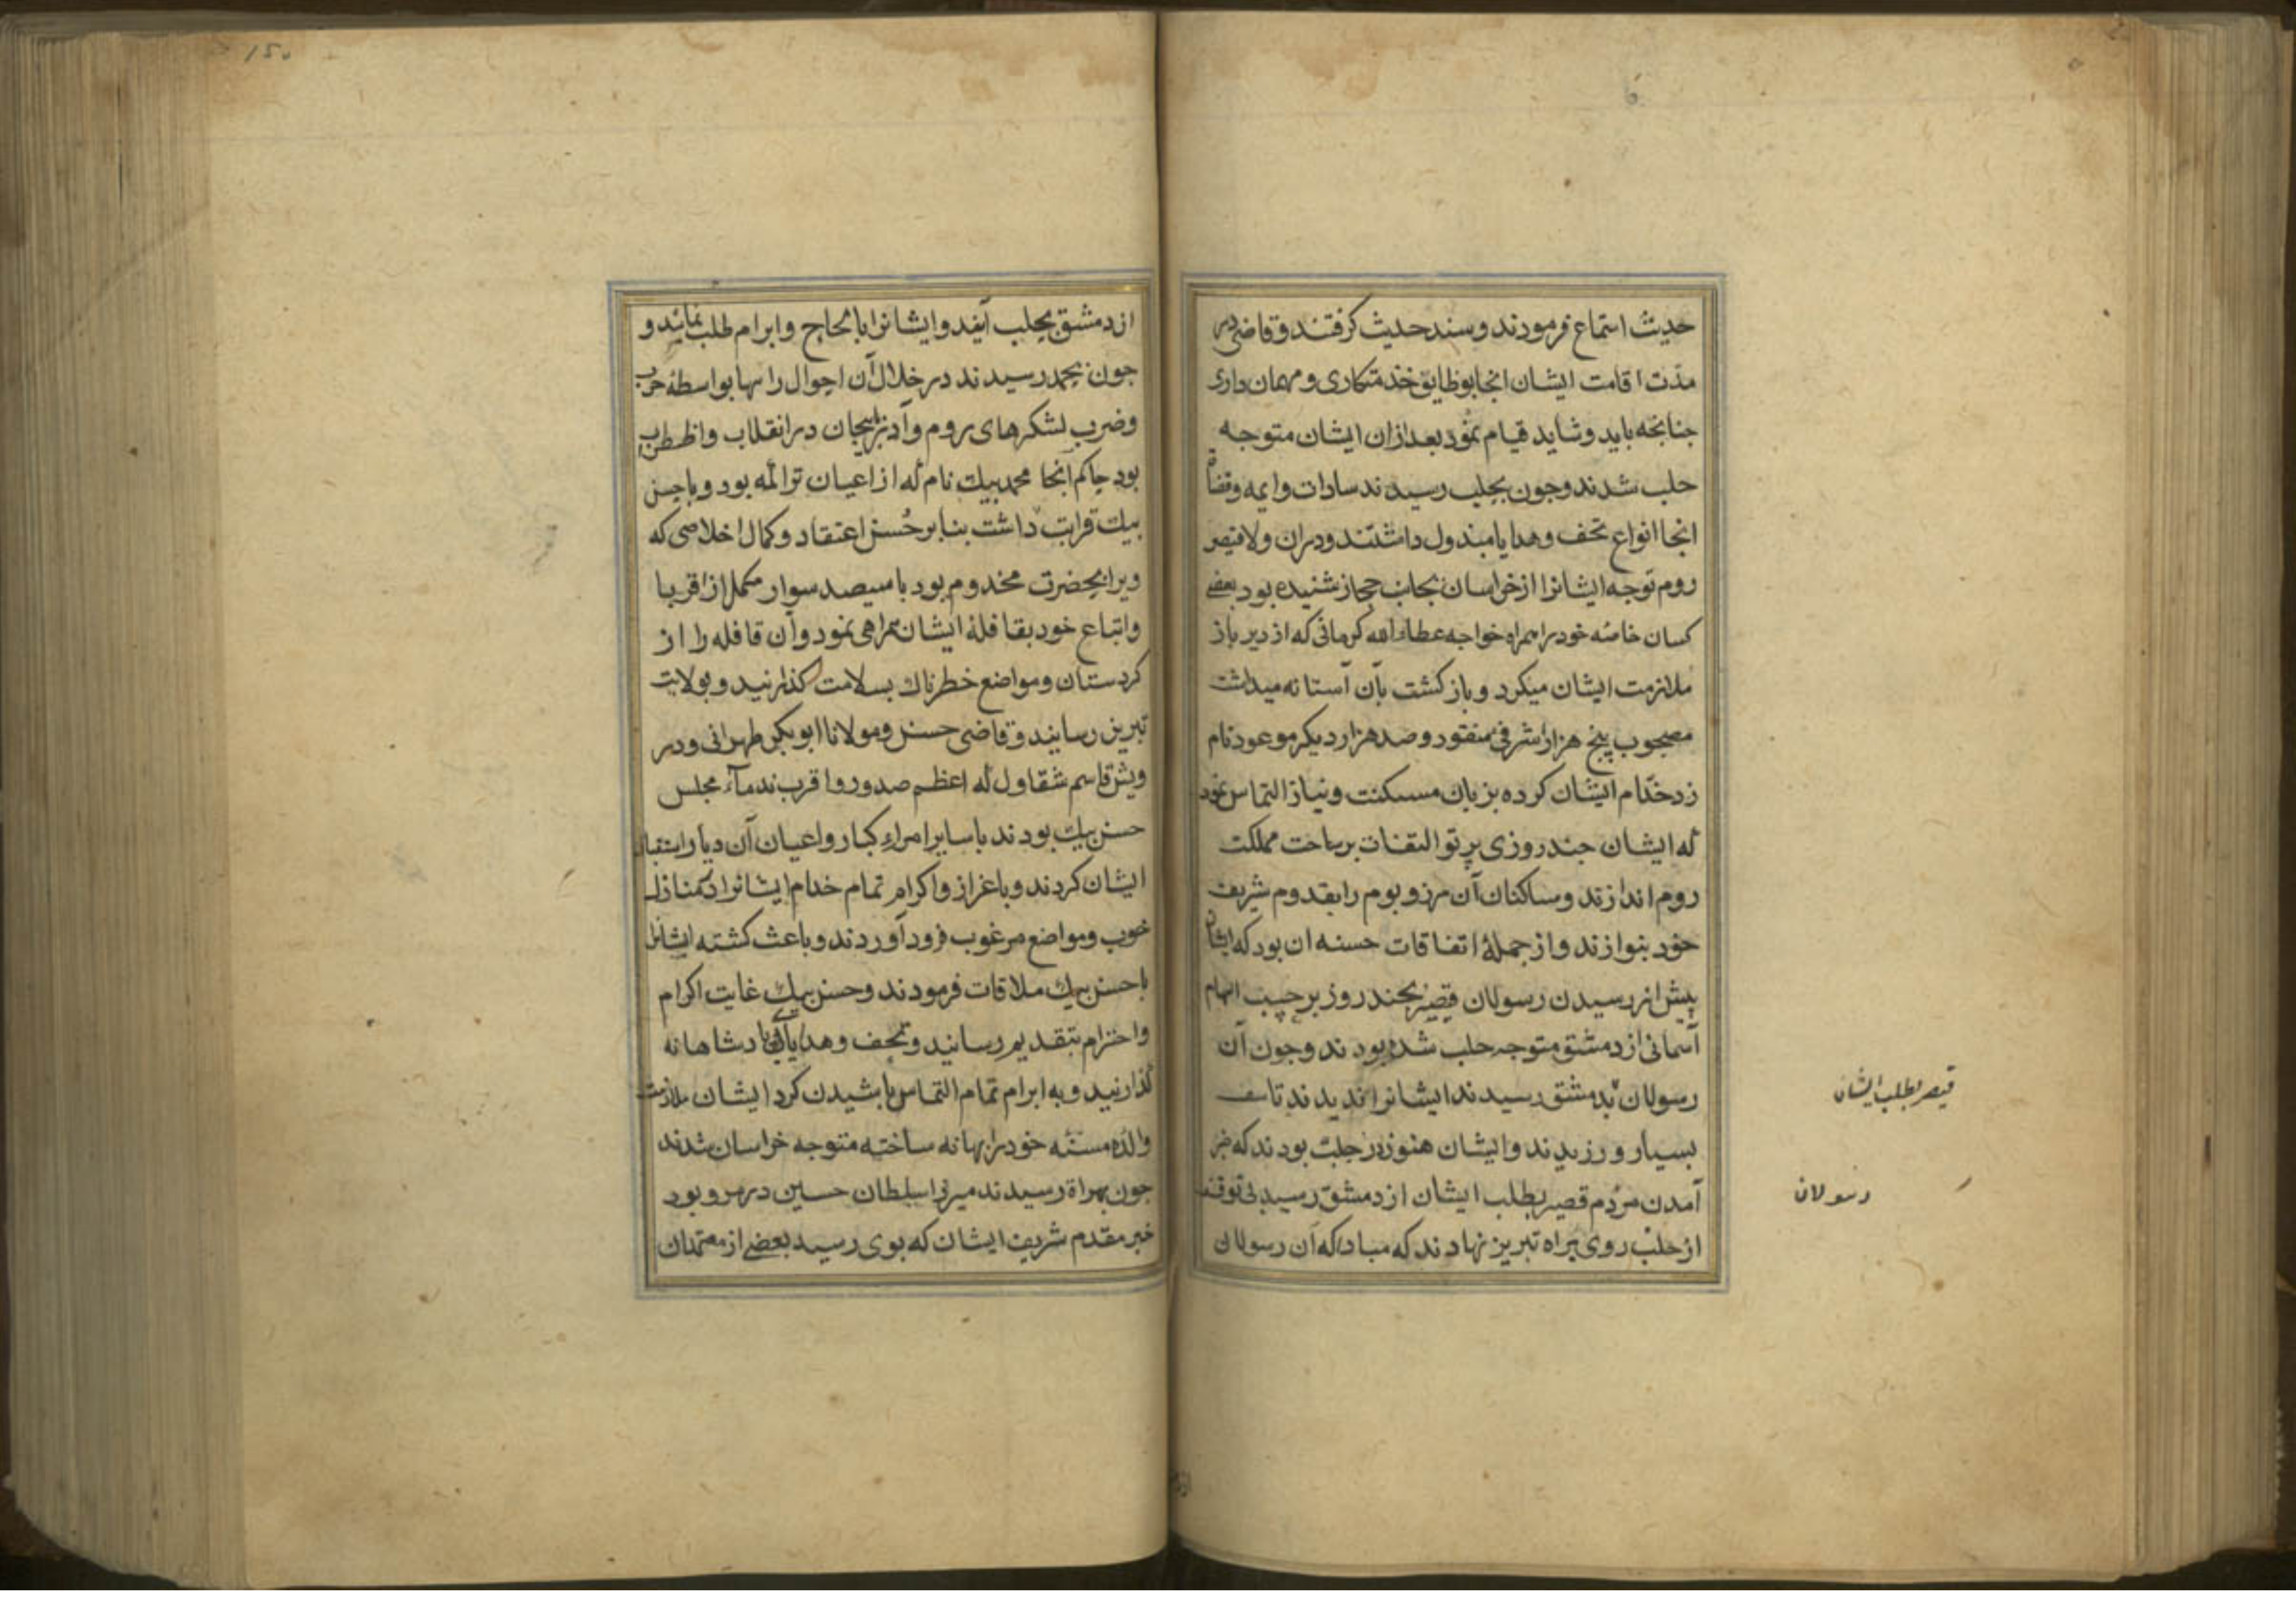 حدیث استماع فرمودند و سند حدیث کرفتند و قاضی در
مدّت اقامت ایشان انجا بوظایق خذمتکاری و مهمان داری
جنابخه باید و شاید قیام نمود بعد ازان ایشان متوجه
حلب شدند و جون بحلب رسیدند سادات و ایمه و قضاة
انجا انواع تحف و هدایا مبذول داشتند و دران ولا قیصر
روم توجه ایشانرا از خراسان بجانب حجاز شنیده بود بعضی
کسان خاصّه خود را همراه خواجه عطاء الله کرمانی که از دیر باز
ملازمت ایشان میکرد و باز کشت بآن آستانه میداشت
مصحوب پنج هزار اشرفی منقود و صد هزار دیکر موعود نام
زد خدّام ایشان کرده بزبان مسکنت و نیاز التماس نمود
که ایشان جند روزی پرتو التفات بر ساحت مملکت
روم اندازند و ساکنان آن مرز و بوم را بقدوم شریف
خود بنوازند و از جملهٔ اتفاقات حسنه ان بود که ایشان
پیش از رسیدن رسولان قیصر بجند روز بر حسب الهام
آسمانی از دمشق متوجه حلب شده بودند و جون آن
رسولان بدمشق رسیدند ایشانرا ندیدند تاسف
بسیار ورزیدند و ایشان هنوز در حلب بودند که خبر
آمدن مردم قیصر بطلب ایشان از دمشق رسید بی توقف
از حلب روی براه تبریز نهادند که مبادا که آن رسولان
قیصر بطلب ایشان
رسولان
۱۵۰
از دمشق بحلب آیند و ایشانرا بالحاج و ابرام طلب نمایند و
جون بحمد رسیدند در خلال آن احوال راهها بواسطهٔ حرب
و ضرب لشکرهای روم و آذربیجان در انقلاب و اضطراب
بود حاکم آنجا محمد بیك نام که از اعیان تراکمه بود و با حسن
بیك قرابت داشت بنابر حُسن اعتقاد و کمال اخلاصی که
ویرا بحضرت مخدوم بود با سیصد سوار مکمل از اقربا
و اتباع خود بقافلهٔ ایشان همراهی نمود و آن قافله را از
کردستان و مواضع خطرناك بسلامت کذرانید و بولایت
تبریز رسانید و قاضی حسن و مولانا ابوبکر طهرانی و در
ویش قاسم شقاول که اعظم صدور و اقرب ندماء مجلس
حسن بیك بودند با سایر امراء کبار و اعیان آن دیار استقبال
ایشان کردند و باعزاز و اکرام تمام خدام ایشانرا در منازل
خوب و مواضع مرغوب فرود آوردند و باعث کشته ایشانرا
با حسن بیك ملاقات فرمودند و حسن بیك غایت اکرام
و احترام بتقدیم رسانید و تحف و هدایای پادشاهانه
کذارنید و به ابرام تمام التماس باشیدن کرد ایشان ملازمت
والدهٔ مسنّه خود را بهانه ساخته متوجه خراسان شدند
جون بهراة رسیدند میرزا سلطان حسین در مرو بود
خبر مقدم شریف ایشان که بوی رسید بعضی از معتمدان